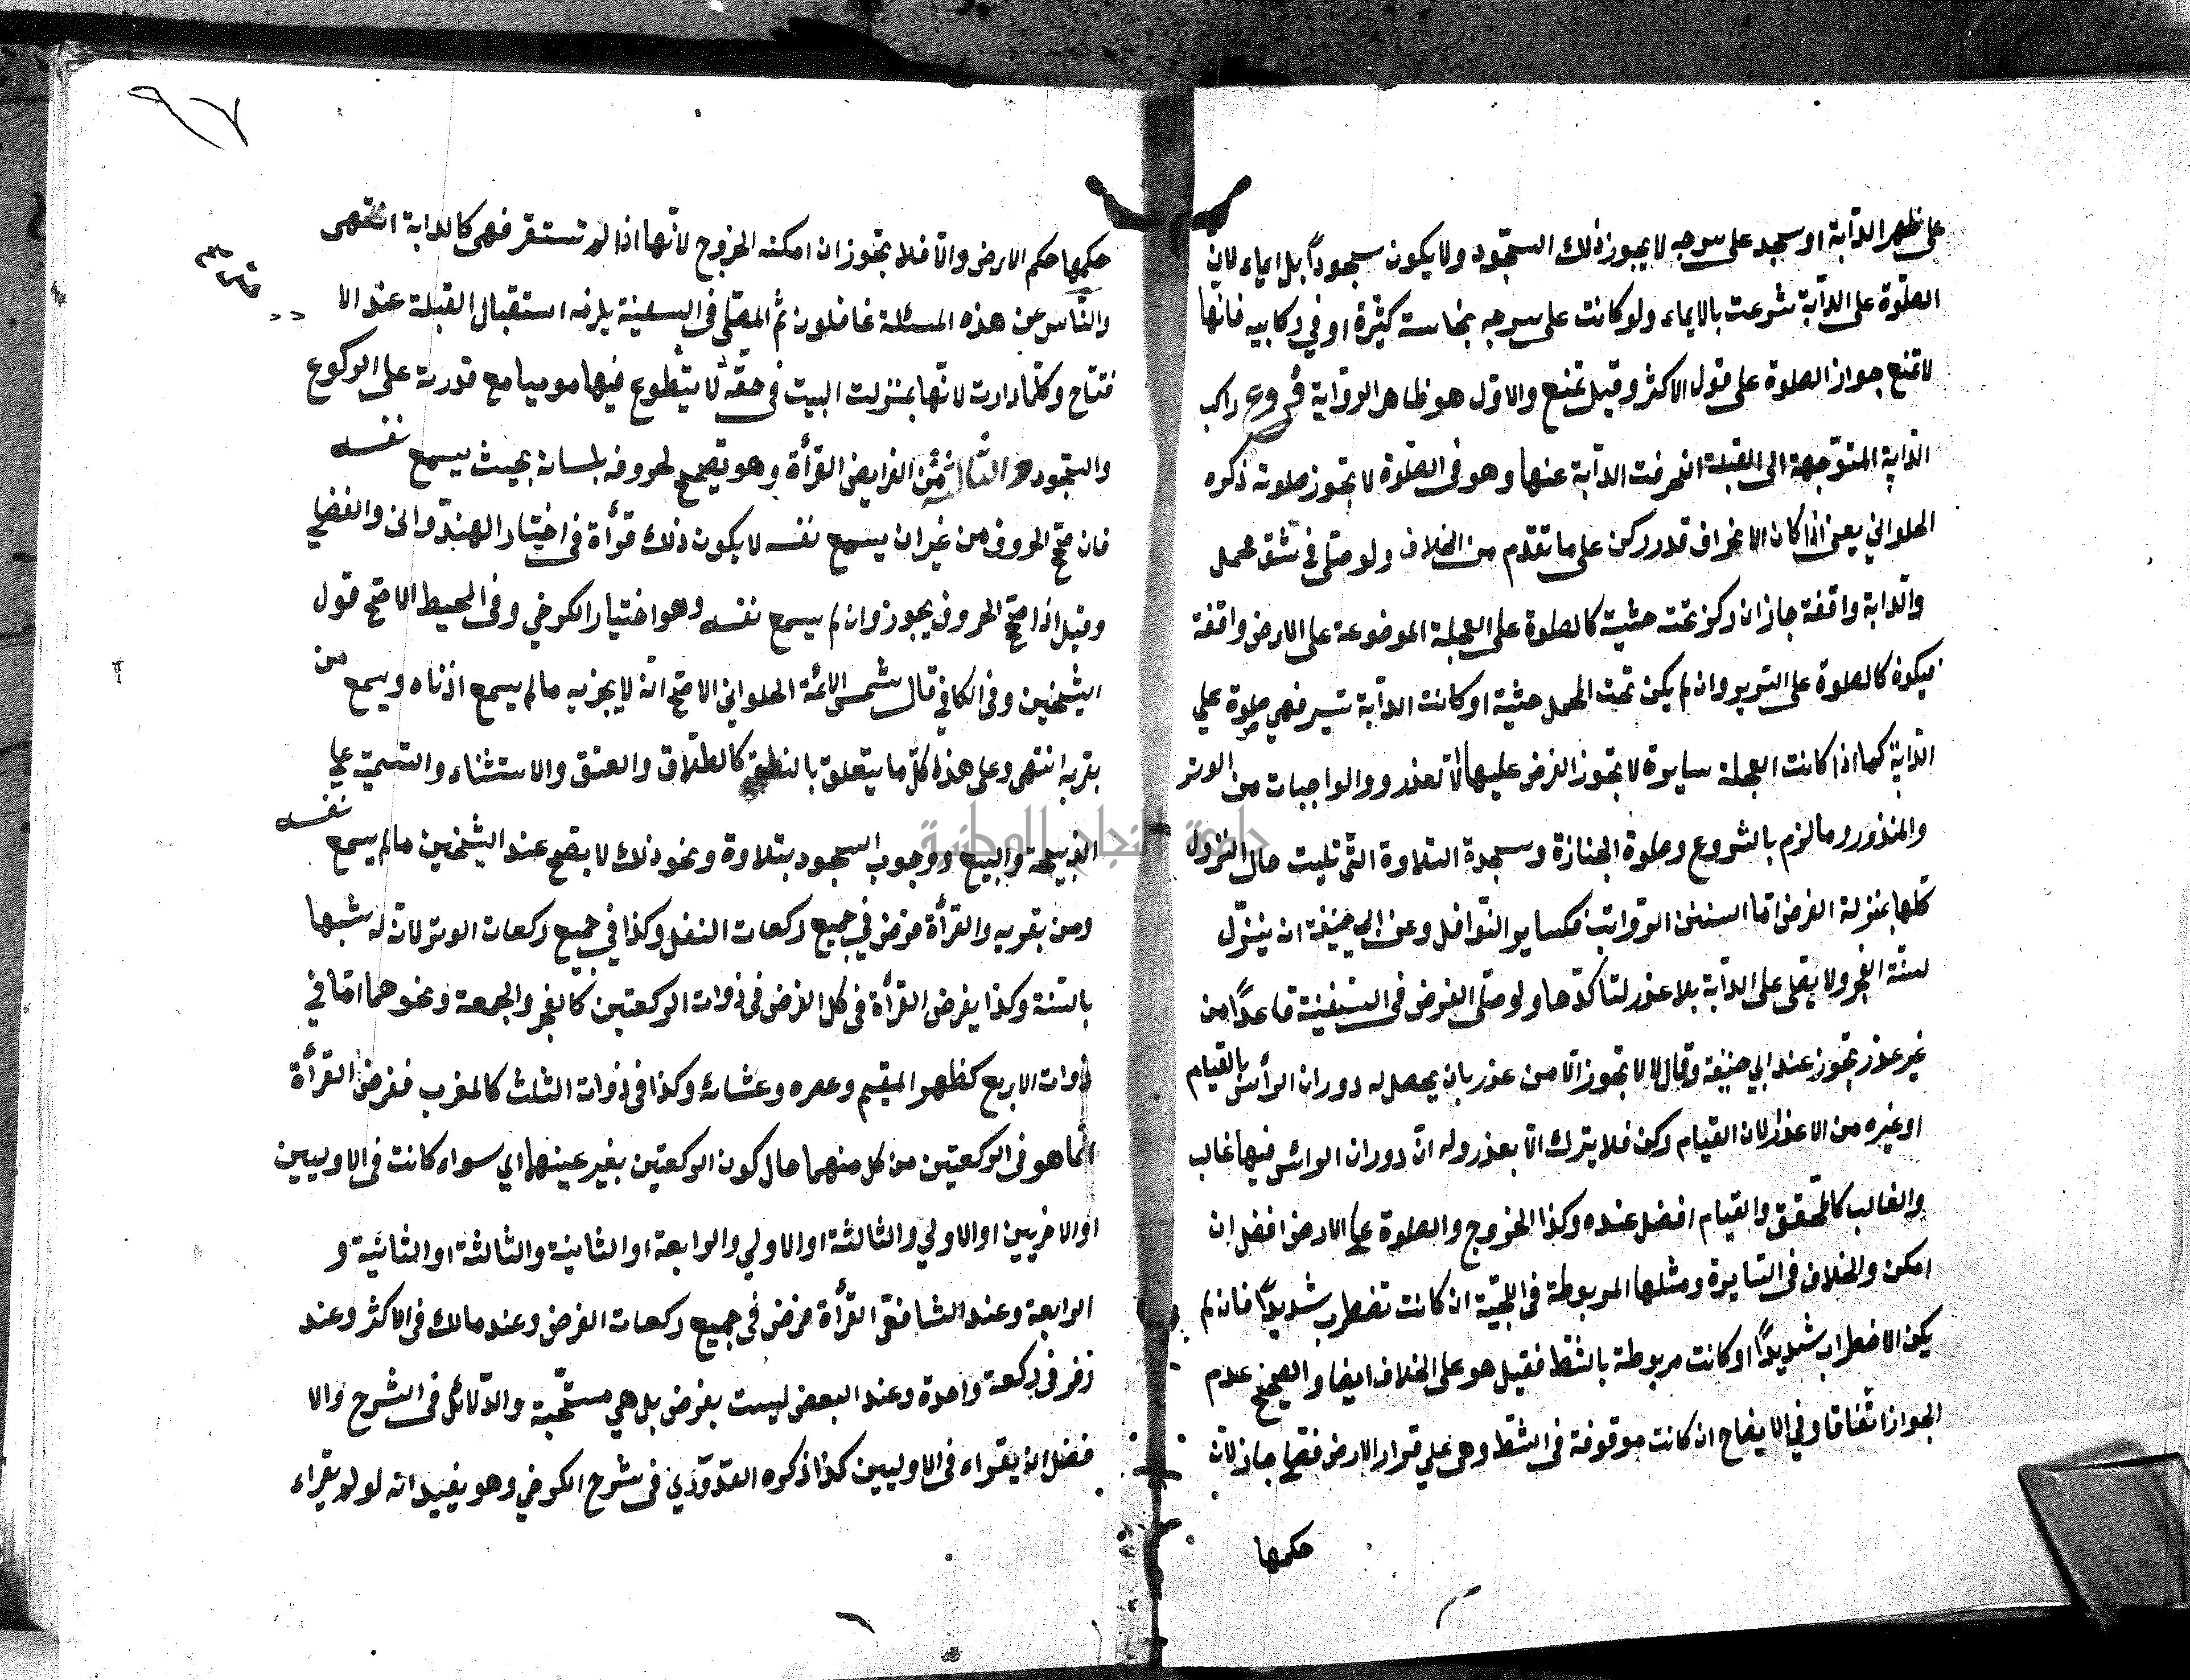 على ظهر الدّابة او سجد على سرجه لا يجوز ذلك السّجود ولا يكون سجوداً بل ايماء لان
الصلوة على الدآبّة شرعت بالايماء ولو كانت على سرجه نجاسة كثيرة او في ركابيه فانها
لا تمنع جواز الصلوة على قول الاكثر وقيل تمنع والاوّل هو ظاهر الروّاية فروع راكب
الدّابة المتوّجهة الى القبلة انحرفت الدآبة عنها وهو فى الصلوة لا تجوز صلوته ذكره
الحلواني يعنى اذا كان الانحراف قدر ركن على ما تقدّم من الخلاف ولو صلى في شق محمل
والدابة واقفة جاز ان ركز تحته خشبة كالصلوة على العجلة الموضوعة على الارض واقفة
فيكون كالصلوة على السّرير وان لم يكن تحت المحمل خشبة او كانت الدآبّة تسير فهي صلوة علي
الدّابة كما اذا كانت العجلة سايرة لا تجوز الفرض عليها الّا لعذر و والواجبات من الوتر
والمنذور وما لزم بالشروع وصلوة الجنازة وسجدة التلاوة التّى تليت حال النزول
كلّها بمنزلة الفرض امّا السنن الرّواتب فكساير النّوافل وعن ابي حنيفة انه ينزل
لسنّة الفجر ولا يصلى على الدآبّة بلا عذر لتأكدّها ولو صلّى الفرض فى السّفينة قاعداً من
غير عذر تجوز عند ابي حنيفة وقالا لا تجوز الّا من عذر بان يحصل له دوران الرأس بالقيام
او غيره من الاعذار لان القيام ركن فلا يترك الّا بعذر وله انّ دوران الرائس فيها غالب
والغالب كالمحقّق والقيام افضل عنده وكذا الخروج والصلوة على الارض افضل ان
امكن والخلاف فى السّايرة ومثلها المربوطة فى اللجّة ان كانت تضطرب شديداً فان لم
يكن الاضطراب شديداً او كانت مربوطة بالشّط فقيل هو على الخلاف ايضا والصحيح عدم
الجواز اتّفاقا وفي الايضاح ان كانت موقوفة فى الشّط وهى علي قرار الارض فصلى جاز لانّ
حكمها
٩٧
حكمها حكم الارض والّا فلا تجوز ان امكنه الخروج لانّها اذا لم تستقر فهى كالدابة انتهى
والنّاس عن هذه المسئلة غافلون ثم المصّلى فى السفينة يلزمه استقبال القبلة عند الا
فتتاح وكلّما دارت لانّها بمنزلت البيت فى حقّه لا يتطوع فيها موميا مع قدرته على الركوع
والسّجود والثالثة من الفرايض القرأة وهو تصحيح لحروفه بلسانه بحيث يسمع نفسه
فان صحّح الحروف من غير ان يسمع نفسه لا يكون ذلك قرأة فى اختيار الهندّوانى والفضلي
وقيل اذا صحّح الحروف يجوز وان لم يسمع نفسه وهو اختيار الكرخي وفى المحيط الاصّح قول
الشيخين وفى الكافي قال شمس الائمّة الحلواني الاصّح انّه لا يجزيه ما لم يسمع اذناه ويسمع من
بقربه انتهى وعلى هذه كلّ ما يتعلق بالنطق كالطلاق والعتق والاستثناء والتسمية على
الذبيحة والبيع ووجوب السجود بتلاوة ونحو ذلك لا يصّح عند الشيخين ما لم يسمع نفسه
ومن بقربه والقرأة فرض في جميع ركعات النفل وكذا في جميع ركعات الوتر لانّ له شبها
بالسّنة وكذا يفرض القرأة فى كل الفرض فى ذوات الركعتين كالفجر والجمعة ونحوهما امّا في
ذوات الاربع كظهر المقيم وعصره وعشائه وكذا فى ذوات الثلث كالمغرب ففرض القرأة
انّما هو فى الركعتين من كل منهما حال كون الركعتين بغير عينهما اي سواء كانت فى الاوليين
او الاخريين او الاولي والثالثة او الاولي والرابعة او الثانية والثالثة او الثانية و
الرابعة وعند الشافعى القرأة فرض فى جميع ركعات الفرض وعند مالك فى الاكثر وعند
زفر فى ركعة واحدة وعند البعض ليست بفرض بل هي مستّحبة والدّلائل فى الشرح والا
فضل ان يقراء فى الاوليين كذا ذكره القدوّري فى شرح الكرخي وهو يفيد انه لو لم يقراء
جامعة النجاح الوطنية